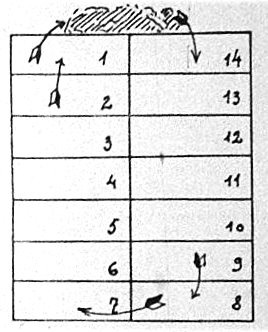 1 14
2 13
3 12
4 11
5 10
6 9
7 8